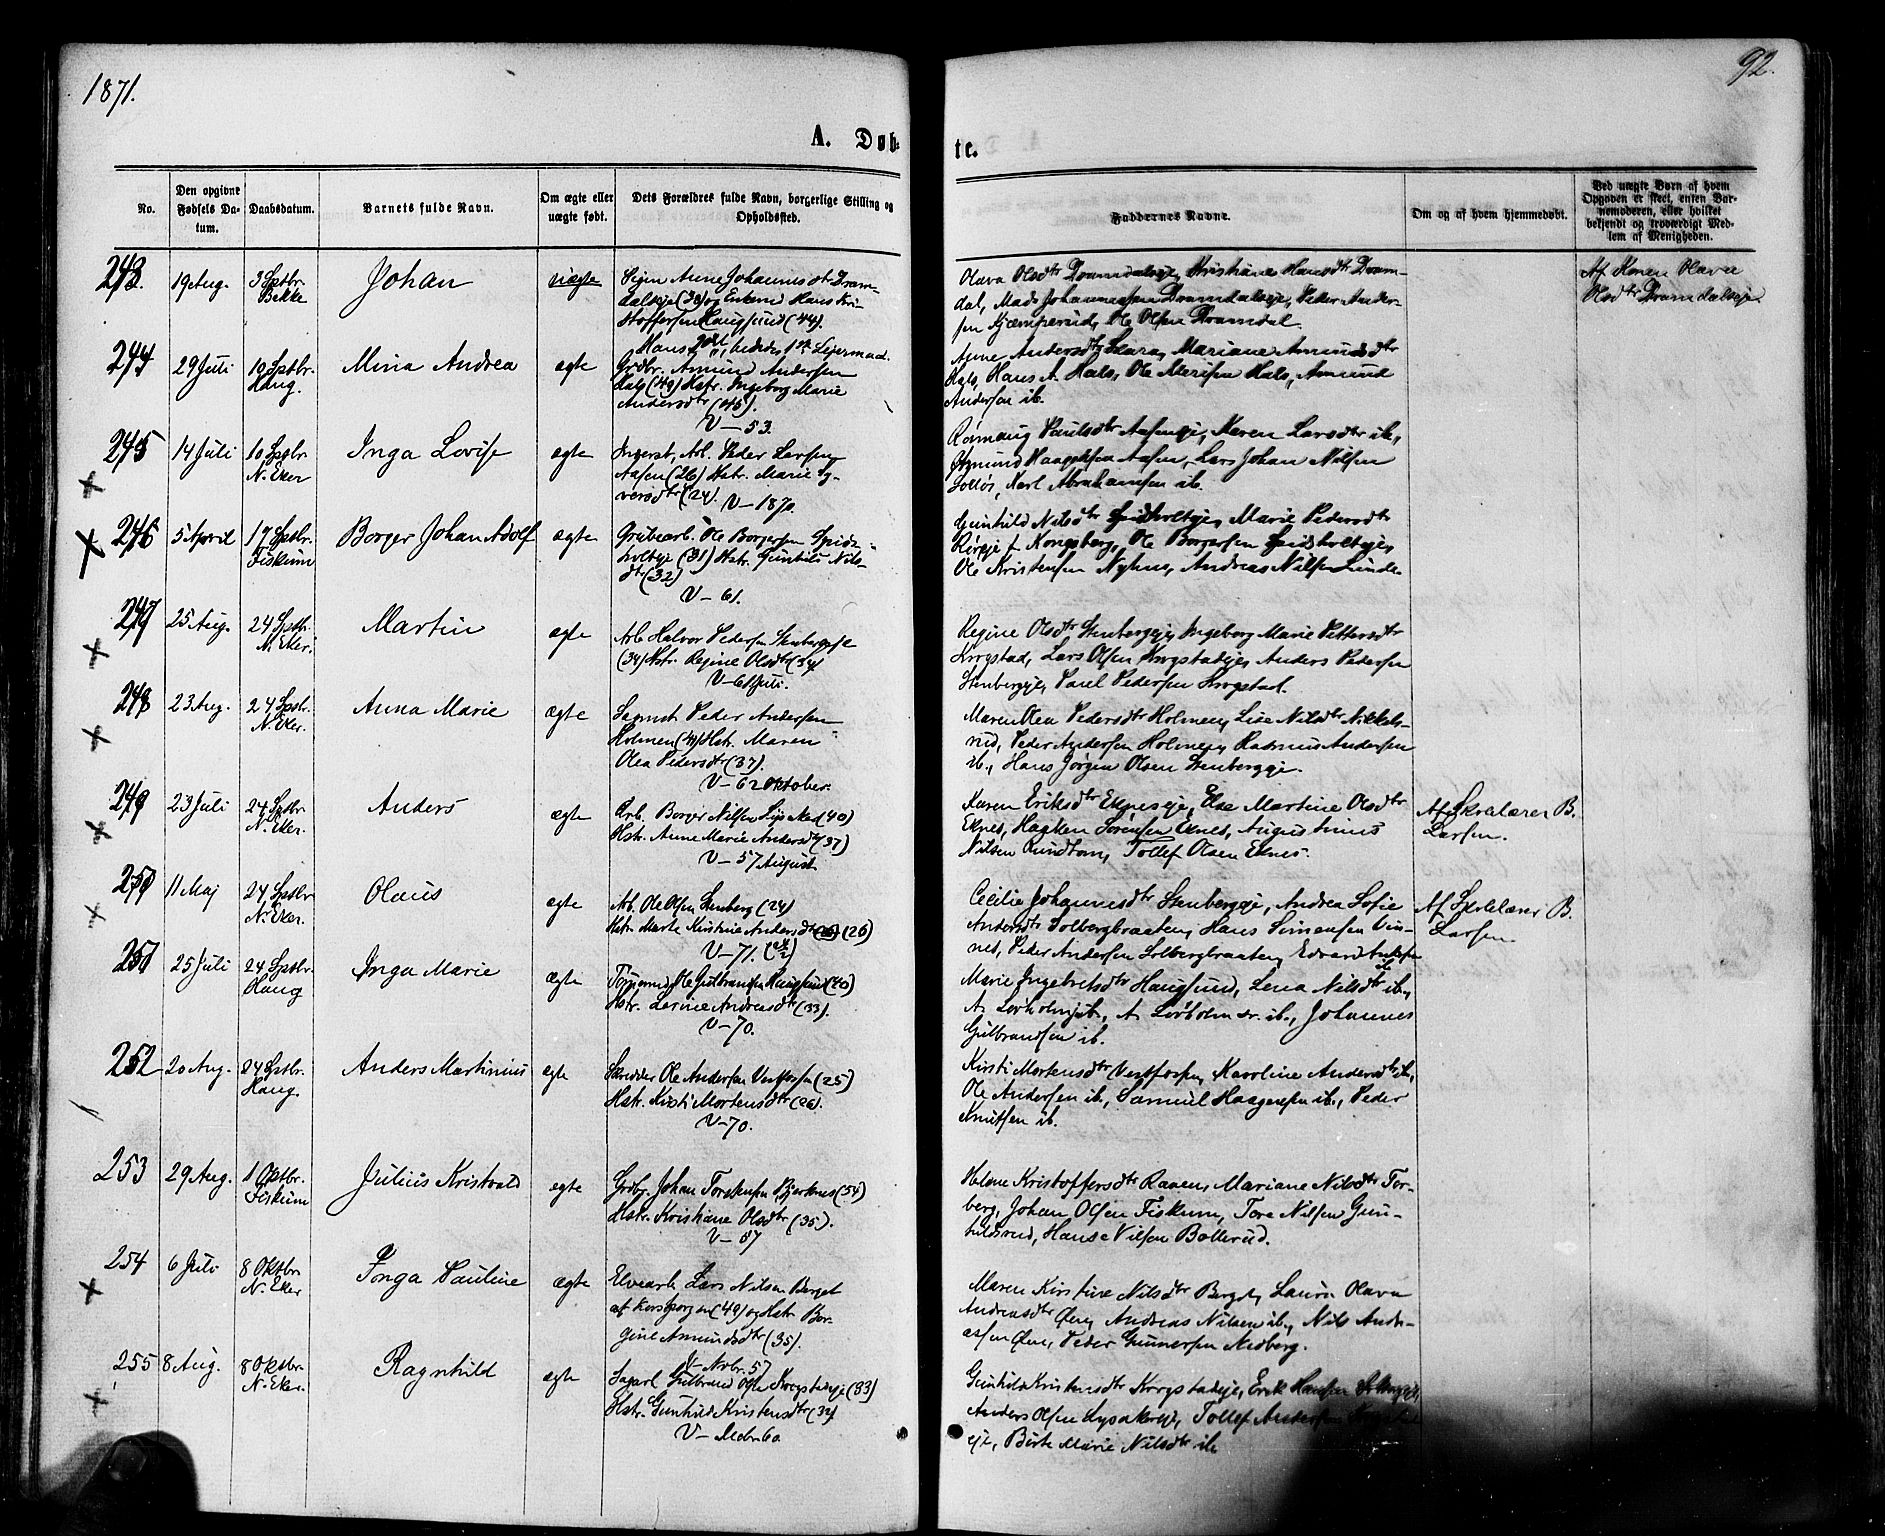 1871.
92.
A. Døb-
te.
No.
Den opgivne
Fødsels Da-
tum.
Daabsdatum.
Barnets fulde Navn.
Om ægte eller
uægte født.
Dets Forældres fulde Navn, borgerlige Stilling og
Opholdssted.
Faddernes Navne.
Om og af hvem hjemmedøbt.
Ved uægte Børn af hvem
Opgaven er skeet, enten Bar-
nemoderen, eller hvilket
bekjendt og troværdigt Med-
lem af Menigheden.
243.
19 Aug.
3 Sptbr.
Bakke
Johan
uægte
Pigen Anne Johannesdtr Dram-
dalseje (38) og Enkem Hans Kri-
stoffersen Haugsund (44).
Hans 2det, hendes 1ste Lejermaal.
Olava Olsdtr Dramdalseje, Kristiane Hansdtr Dram-
dal, Mads Johannesen Dramdalseje, Peder Ander-
sen Kjæmperud, Ole Olsen Dramdal.
Af Konen Olava
Olsdtr Dramdalseje
244
29 Juli
10 Sptbr.
Haug.
Mina Andrea
ægte
Grdbr. Amund Andersen
Hals (49) Hstr. Ingeborg Marie
Andersdtr (45).
V-53.
Anne Andersdtr Skara, Mariane Amundsdtr
Hals, Hans A. Hals, Ole Hals, Amund
Andersen ib.
245
14 Juli
10 Sptbr.
N. Eker
Inga Lovise
ægte
Arb. Peder Larsen
Aasen (26) Hstr. Marie Sy-
versdtr (24). V-1870.
Paulsdtr Aaseneje, Karen Larsdtr ib.,
Haagensen Aasen, Lars Johan Nilsen
Karl Abrahamsen ib.
246
5 April
17 Sptbr.
Fiskum
Borger Johan Adolf
ægte
Grubearb. Ole Borgersen Spids-
holteje (31) Hstr. Gunhild Nils-
dtr (32)
V-61.
Gunhild Nilsdtr Spidsholteje, Marie Pedersdtr
Kongsberg, Ole Borgersen Spidsholteje,
Ole Kristensen Nyhus, Andreas Nilsen Lunde
247
25 Aug.
24 Sptbr.
N. Eker.
Martin
ægte
Arb. Halvor Pedersen Stenbergeje
(34) Hstr. Regine Olsdtr (34)
V-61 Juli.
Regine Olsdtr Stenbergeje, Ingeborg Marie Pettersdtr
Krogstad, Lars Olsen Krogstadeje, Anders Pedersen
Stenbergeje, Paul Pedersen Krogstad.
248
23 Aug.
24 Sptbr.
N. Eker.
Anna Marie
ægte
Sagmst. Peder Andersen
Holmen (41) Hstr. Maren
Olea Pedersdtr (37).
V-62 Oktober.
Maren Olea Pedersdtr Holmen, Lise Nilsdtr Nikkels-
rud, Peder Andersen Holmen, Rasmus Andersen
ib., Hans Jørgen Olsen Stenbergeje.
249
23 Juli
24 Sptbr.
N. Eker.
Anders
ægte
Arb. Borger Nilsen (40)
Hstr. Anne Marie Andersdtr (37)
V-57 August
Karen Eriksdtr Ekneseje, Else Martine Olsdtr
Eknes, Haaken Sørensen Eknes, Augustinus
Nilsen Rundtom, Tollef Olsen Eknes.
Af Skolelærer B.
Larsen.
250
11 Maj
24 Sptbr
N. Eker
Olaus
ægte
Arb. Ole Olsen Stenberg (24)
Hstr. Marte Kirstine Andersdtr (26)
V-71.
Cecilie Johannesdtr Stenbergeje, Andrea Sofie
Andersdtr Solbergbraaten, Hans Simonsen Vin-
nes, Peder Andersen Solbergbraaten, Edvard Andersen
ib.
Af Skolelærer B.
Larsen.
251
25 Juli
24 Sptbr
Haug
Inga Marie
ægte
Ole Gulbransen Haugsund (40)
Hstr. Larine Andreasdtr (33).
V-70.
Marie Ingebretsdtr Haugsund, Lena Nilsdtr ib.,
A. Løvholm jr. ib., A. Løvholm sr. ib., Johannes
Gulbrandsen ib.
252
20 Aug.
24 Sptbr.
Haug.
Anders Martinius
ægte
Skredder Ole Andersen Vestfossen (25)
Hstr. Kirsti Mortensdtr (26).
V-70.
Kirsti Mortensdtr Vestfossen, Karoline Andersdtr ib.,
Ole Andersen ib., Samuel Haagensen ib., Peder
Knutsen ib.
253
29 Aug.
1 Oktbr.
Fiskum
Julius Kristvald
ægte
Grdbr. Johan Torstensen Bjerknes (54)
Hstr. Kristiane Olsdtr (35).
V-57
Helene Kristoffersdtr Raaen, Mariane Nilsdtr Tor-
berg, Johan Olsen Fiskum, Tore Nilsen Gun-
hildsrud, Hans Nilsen Bollerud.
254
6 Juli
8 Oktbr.
N. Eker
Inga Pauline
ægte
Elvearb. Lars Nilsen Berget
af Korsborgen (49) og Hstr. Bor-
gine Amundsdtr (35).
V-Novbr. 57
Maren Kirstine Nilsdtr Berget, Laura Olava
Andreasdtr Øren, Andreas Nilsen ib., Nils Andre-
assen Øren, Peder Gunnersen Nedberg.
255
8 Aug.
8 Oktbr.
N. Eker.
Ragnhild
ægte
Sagarb. Gulbrand Olsen Krogstadeje (33)
Hstr. Gunhild Kristensdtr (32)
V-Mabr 60
Gunhild Kristensdtr Krogstadeje, Erik Hansen
Anders Olsen Lysakereje, Tollef Andersen Krogstad-
eje, Birte Marie Nilsdtr ib